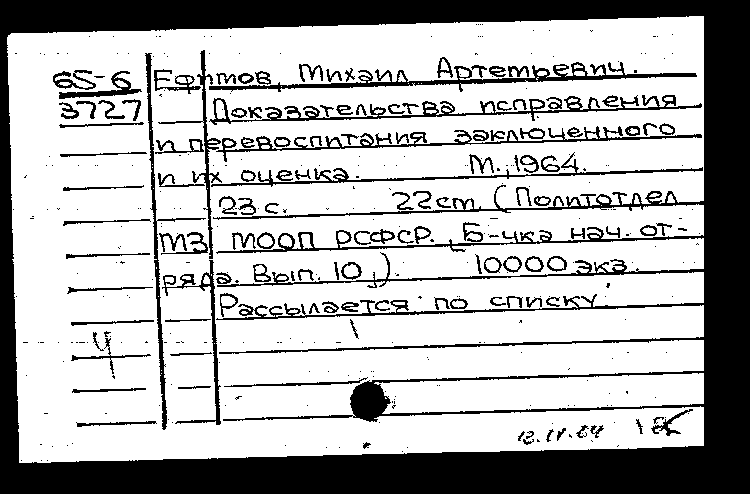 65-6 Ефимов, Михаил Артемьевич.
3727 Доказательства исправления
и перевоспитания заключенного
и их оценка. М., 1964.
23 с. 22 cm. (Политотдел
МЗ МООП РСФСР. Б-чка нач. от-
ряда. Вып. 10.) 10000 экз.
Рассылается по списку.
Ч